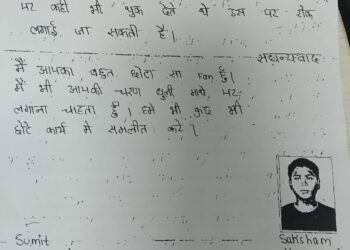 पर कही भी थुक देते वो उस पर रोक
लगाई जा सकती है।
सधन्यवाद
मैं आपका बहुत छोटा सा Fan हुँ।
मैं भी आपकी चरण धुली माथे पर
लगाना चाहता हुँ। हमे भी कुछ भी
छोटे कार्य मे समलीत करे।
Sumit
Saksham